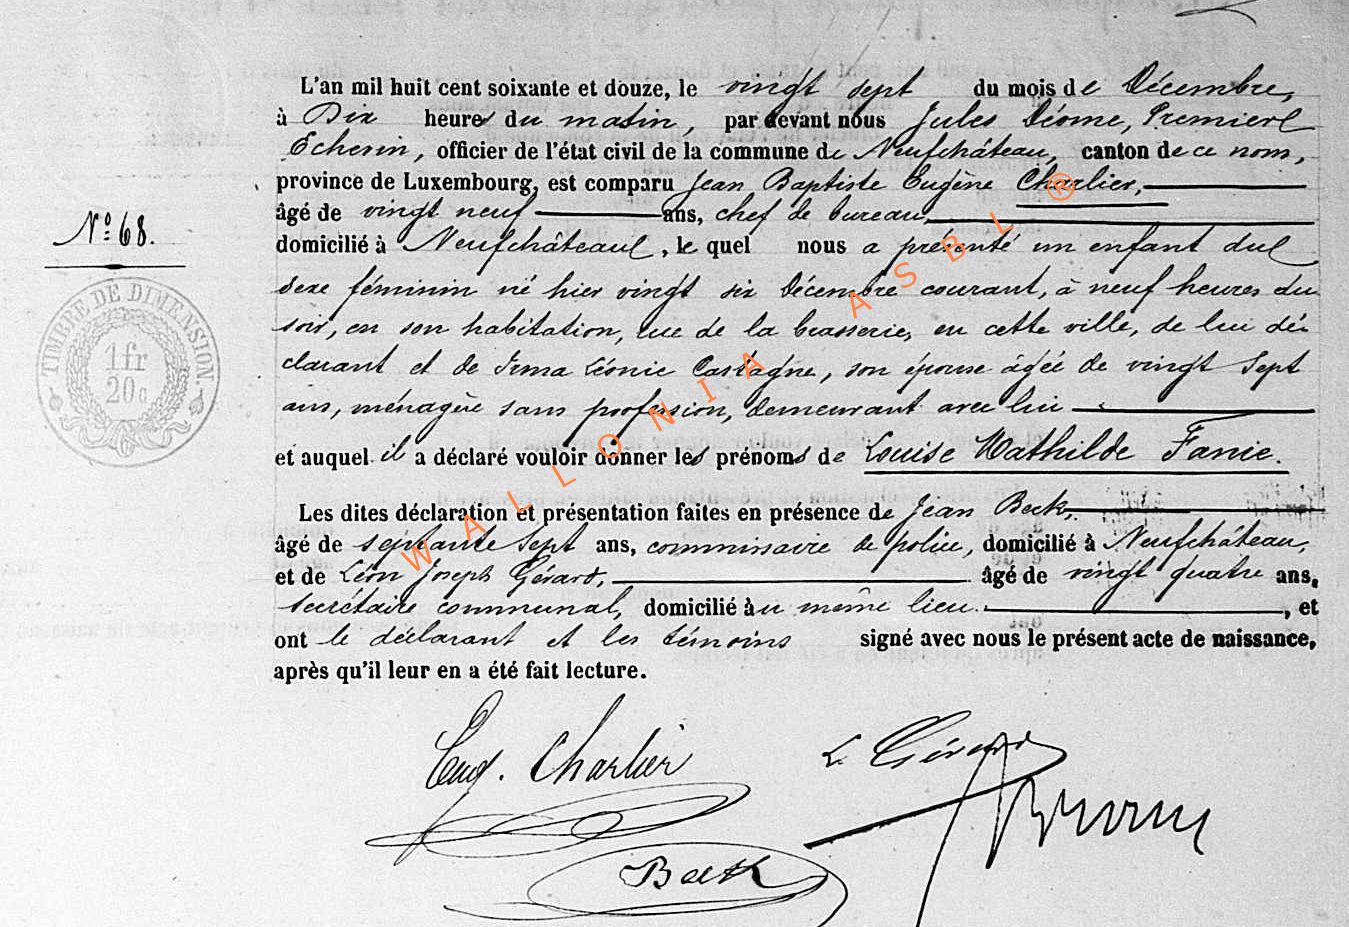 L'an mil huit cent soixante et douze, le vingt sept du mois de Décembre,
à Dix heures du matin, par devant nous Jules Déome, Premier
Echevin, officier de l'état civil de la commune de Neufchâteau, canton de ce nom,
province de Luxembourg, est comparu Jean Baptiste Eugène Charlier,
N° 68.
âgé de vingt neuf ans, chef de bureau,
domicilié à Neufchâteau, le quel nous a présenté un enfant du
sexe féminin né hier vingt six Décembre courant, à neuf heures du
soir, en son habitation, rue de la brasserie, en cette ville, de lui dé-
clarant et de Irma Léonie Castagne, son épouse âgée de vingt sept
ans, ménagère sans profession, demeurant avec lui
et auquel il a déclaré vouloir donner les prénoms de Louise Mathilde Fanie.
Les dites déclaration et présentation faites en présence de Jean Beck,
âgé de septante sept ans, commissaire de police, domicilié à Neufchâteau,
et de Léon Joseph Gérard, âgé de vingt quatre ans,
secrétaire communal, domicilié au même lieu, et
ont le déclarant et les témoins signé avec nous le présent acte de naissance,
après qu'il leur en a été fait lecture.
TIMBRE DE DIMENSION.
1 fr
20 c
WALLONIA ASBL ®
Eug. Charlier
L. Gérard
Beck